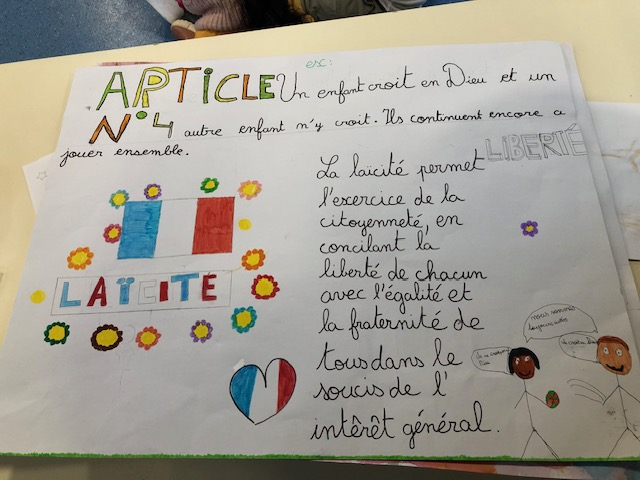 esc:
ARTICLE Un enfant croit en Dieu et un
N°4 autre enfant n'y croit. Ils continuent encore a
jouer ensemble.
LIBERTÉ
La laïcité permet
l'exercice de la
citoyenneté, en
concilant la
liberté de chacun
avec l'égalité et
la fraternité de
tous dans le
soucis de l'
intérêt général.
LAÏCITÉ
nous sommes
toujours